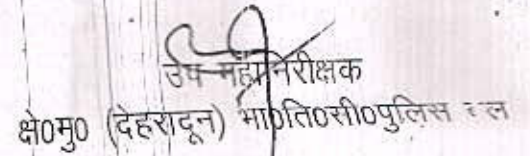 उप महानिरीक्षक
क्षे0मु0 (देहरादून) भा0ति0सी0पुलिस